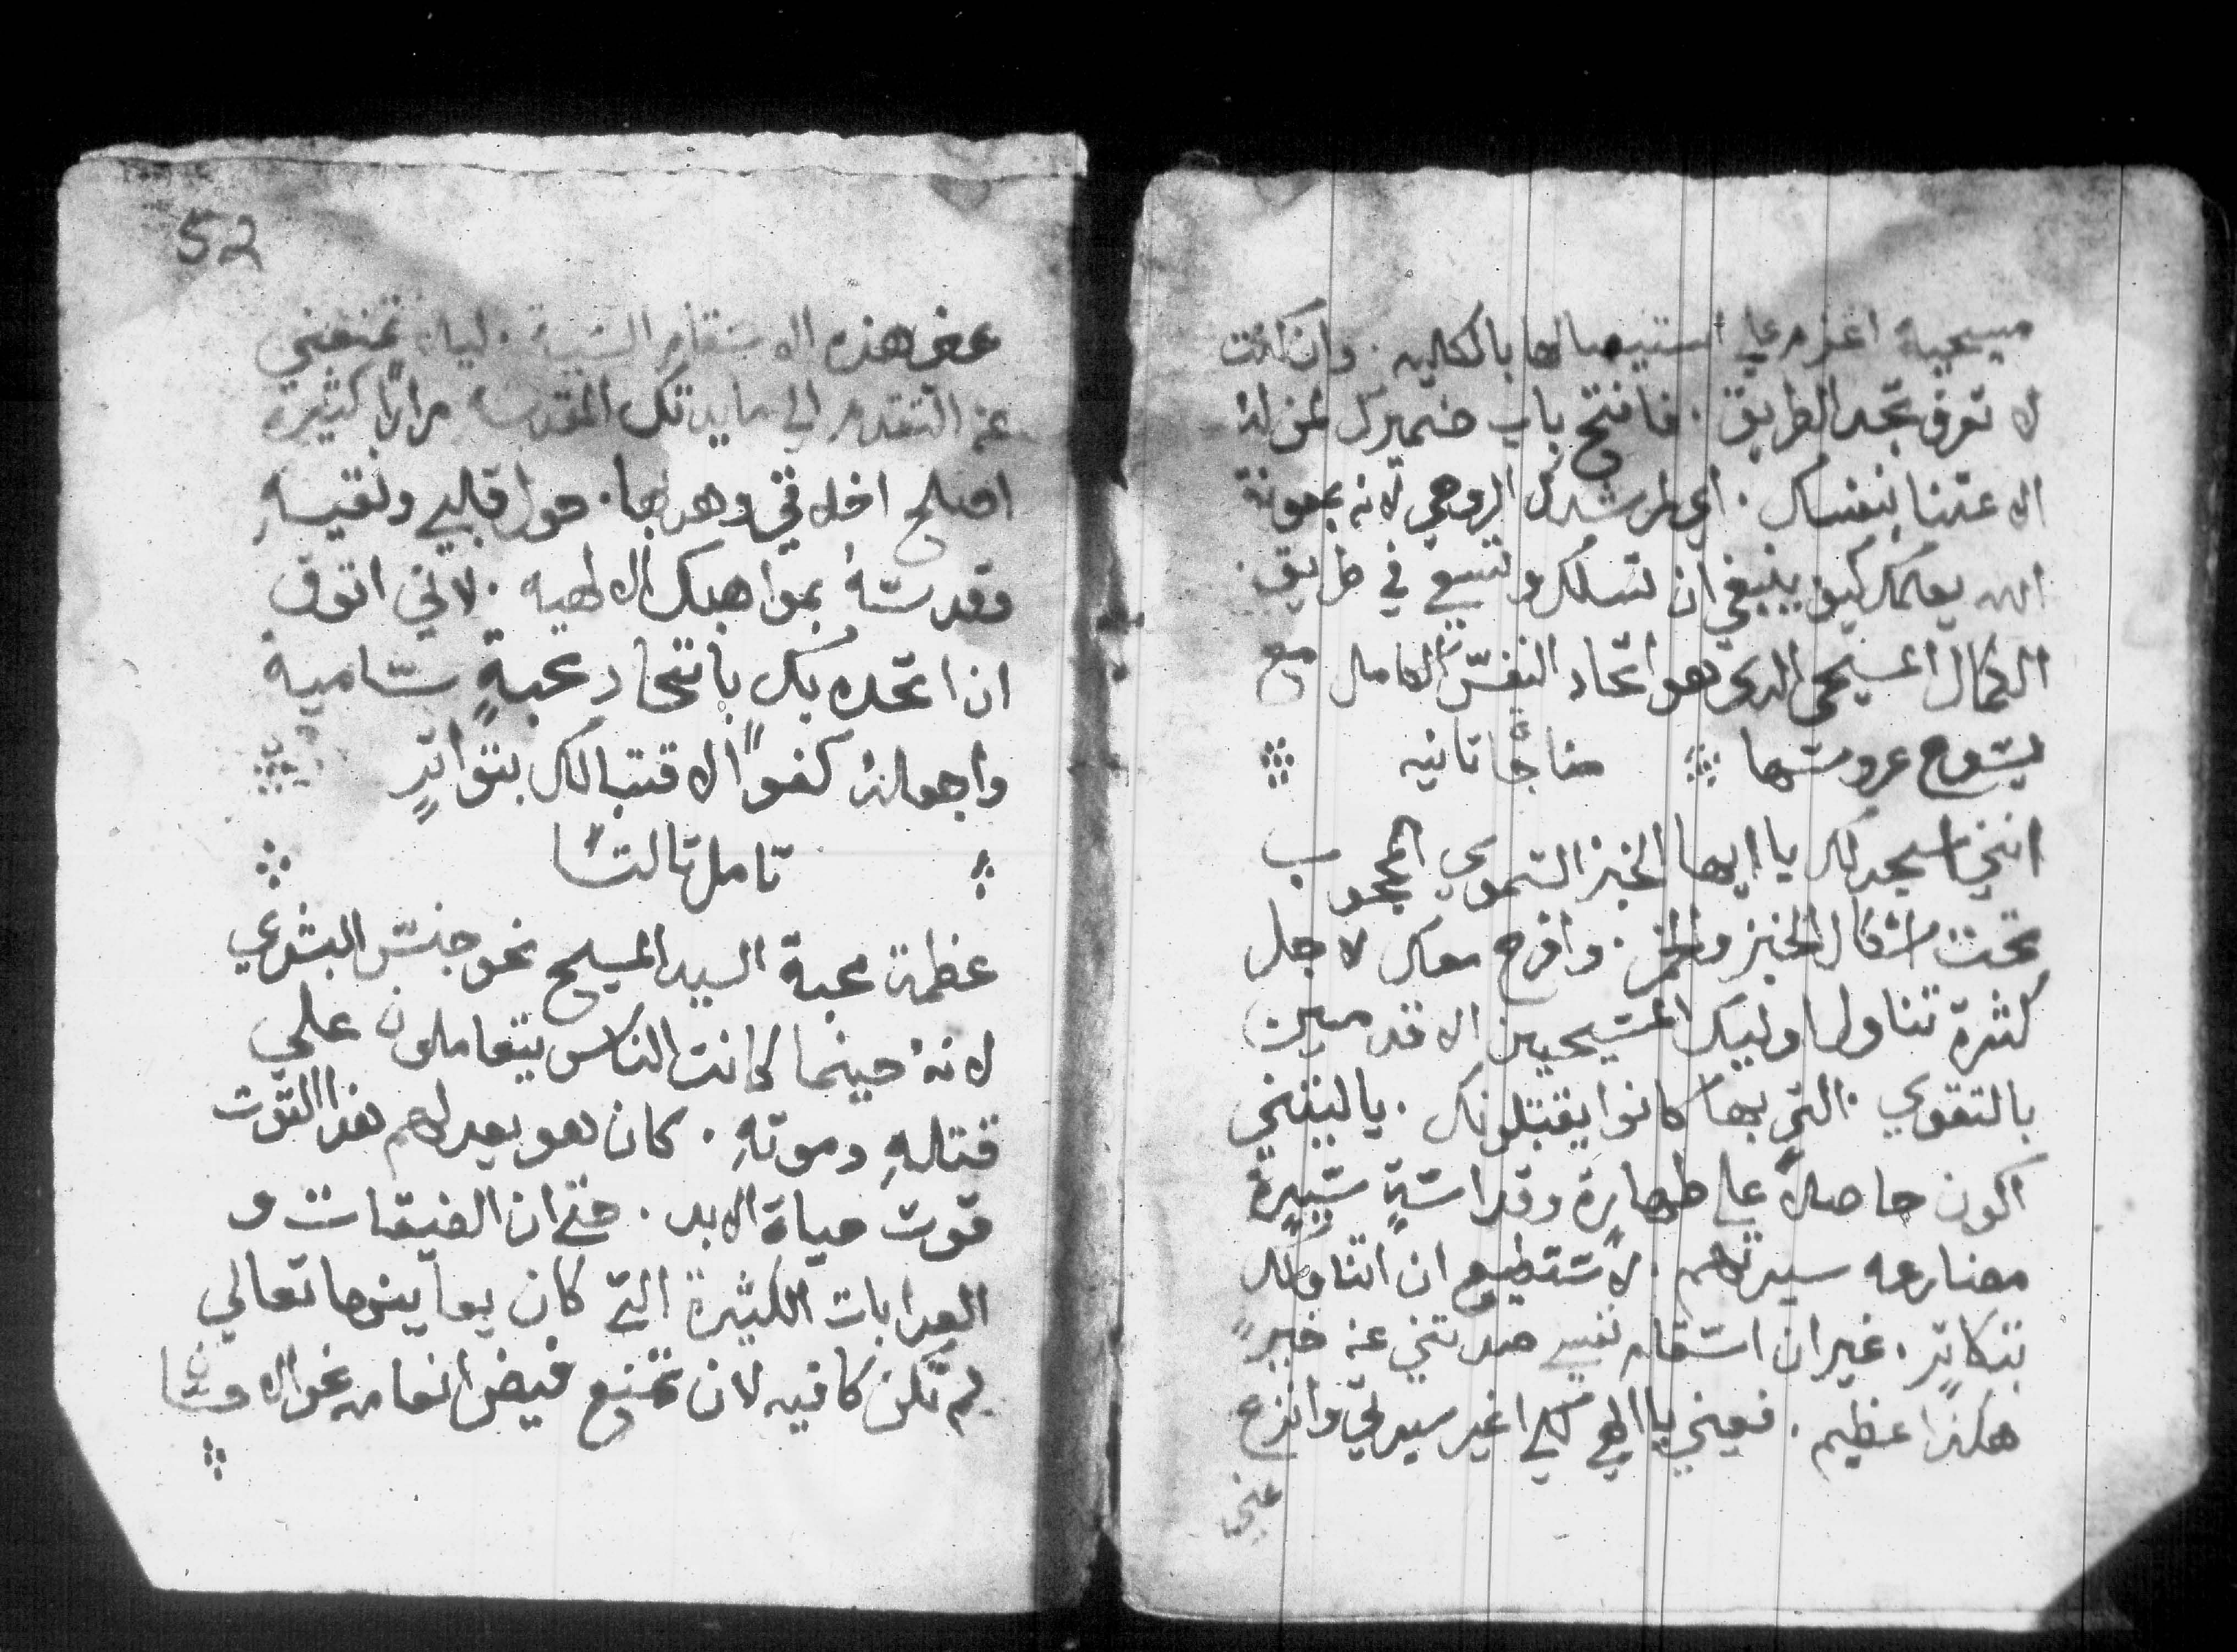 مسيحيية اعزم علي استيصالها بالكليه. وان كنت
لا تعرف تجد الطريق. فافتح باب ضميرك لمن لهُ
الاعتنا بنفسك. اي لمرشدك الروحي لانه بمعونة
الله يعلمك كيف ينبغي ان تسلك وتسعي في طريق
الكمال المسيحي الدي هو اتحاد النفس الكامل مع
يسوع عروسها مناجاة تانيه
انني اسجد لك يا ايها الخبز السموي المحجوب
تحت اشكال الخبز والخمر. وافرح معك لاجل
كثرة تناول اوليك المسيحيين الاقدمين
بالتقوي التي بها كانوا يقتبلونك. ياليتني
اكون حاصلاً علي طهارةٍ وقداسةٍ شبيهة
مضارعه سيرتهم. لاستطيع ان اتناولك
بتكاترٍ. غير ان اسقام نفسي صدتني عن خيرٍ
هكذا عظيم. فعيني يا الهي لكي اغير سيرتي وانزع
عني
52
عني هذه الاسقام السيية. ليلا تمنعني
عن التقدم الي مايدتك المقدسه مراراً كثيرة
اصلح اخلاقي وهدبها. حول قلبي ونقيهِ
وقدسهُ بمواهبك الالهيه. لاني اتوق
ان اتحد بك باتحاد محبةٍ سامية
واجعلهُ كفواً لاقتبالك بتواترٍ
تامل تالتاً
عظمة محبة السيد المسيح نحو جنس البشري
لانهُ حينما كانت الناس يتعاملون علي
قتلهِ وموتهِ. كان هو يعد لهم هذا القوت
قوت حياة الابد. حتي ان الضيقات و
العدابات الكثيرة التي كان يعاينها تعالي
لم تكن كافيه لان تمنع فيض انعامه نحو الا